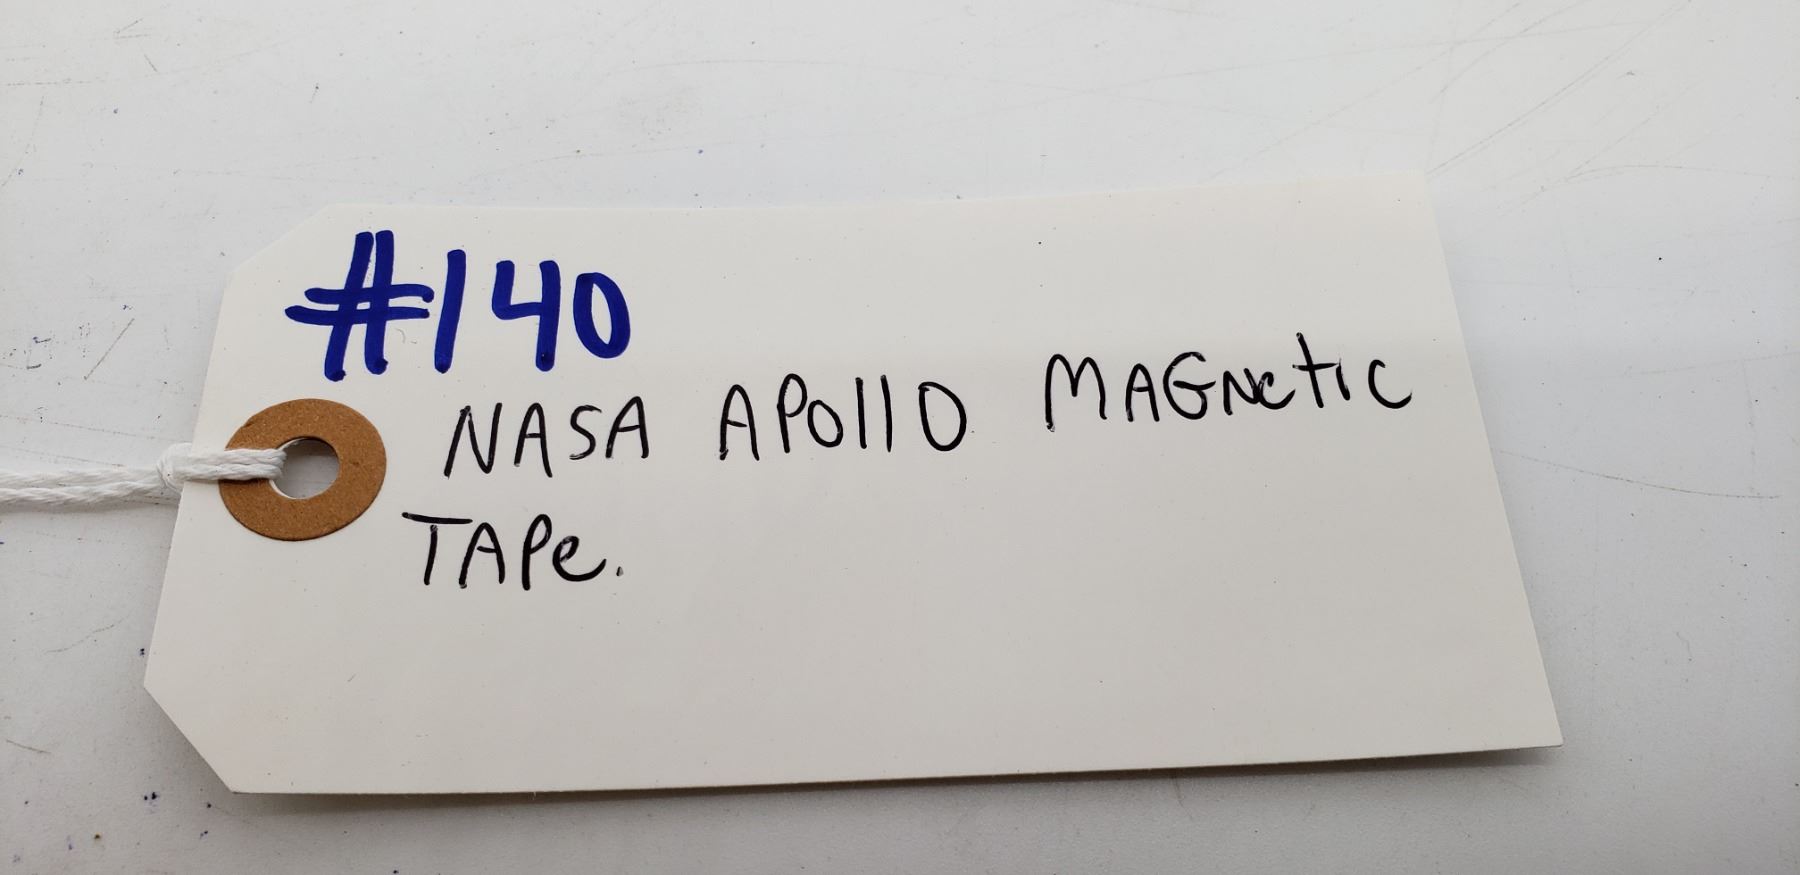 #140
NASA APollO MAGNetic
TAPe.